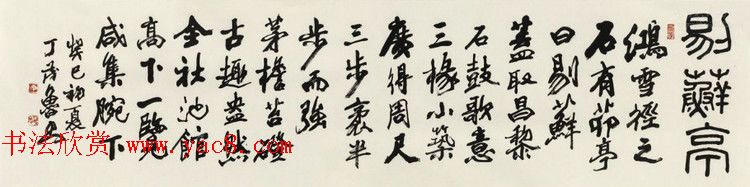 剔蘚亭
鴻雪徑之
石有茆亭
曰剔蘚
蓋取昌黎
石鼓歌意
三椽小築
廣得周尺
三步袤半
步而強
茅檐苔磴
古趣盎然
全社池館
高下一覽
咸集腕下
癸巳初夏
丁茂魯書
书法欣赏 www.yac8.com